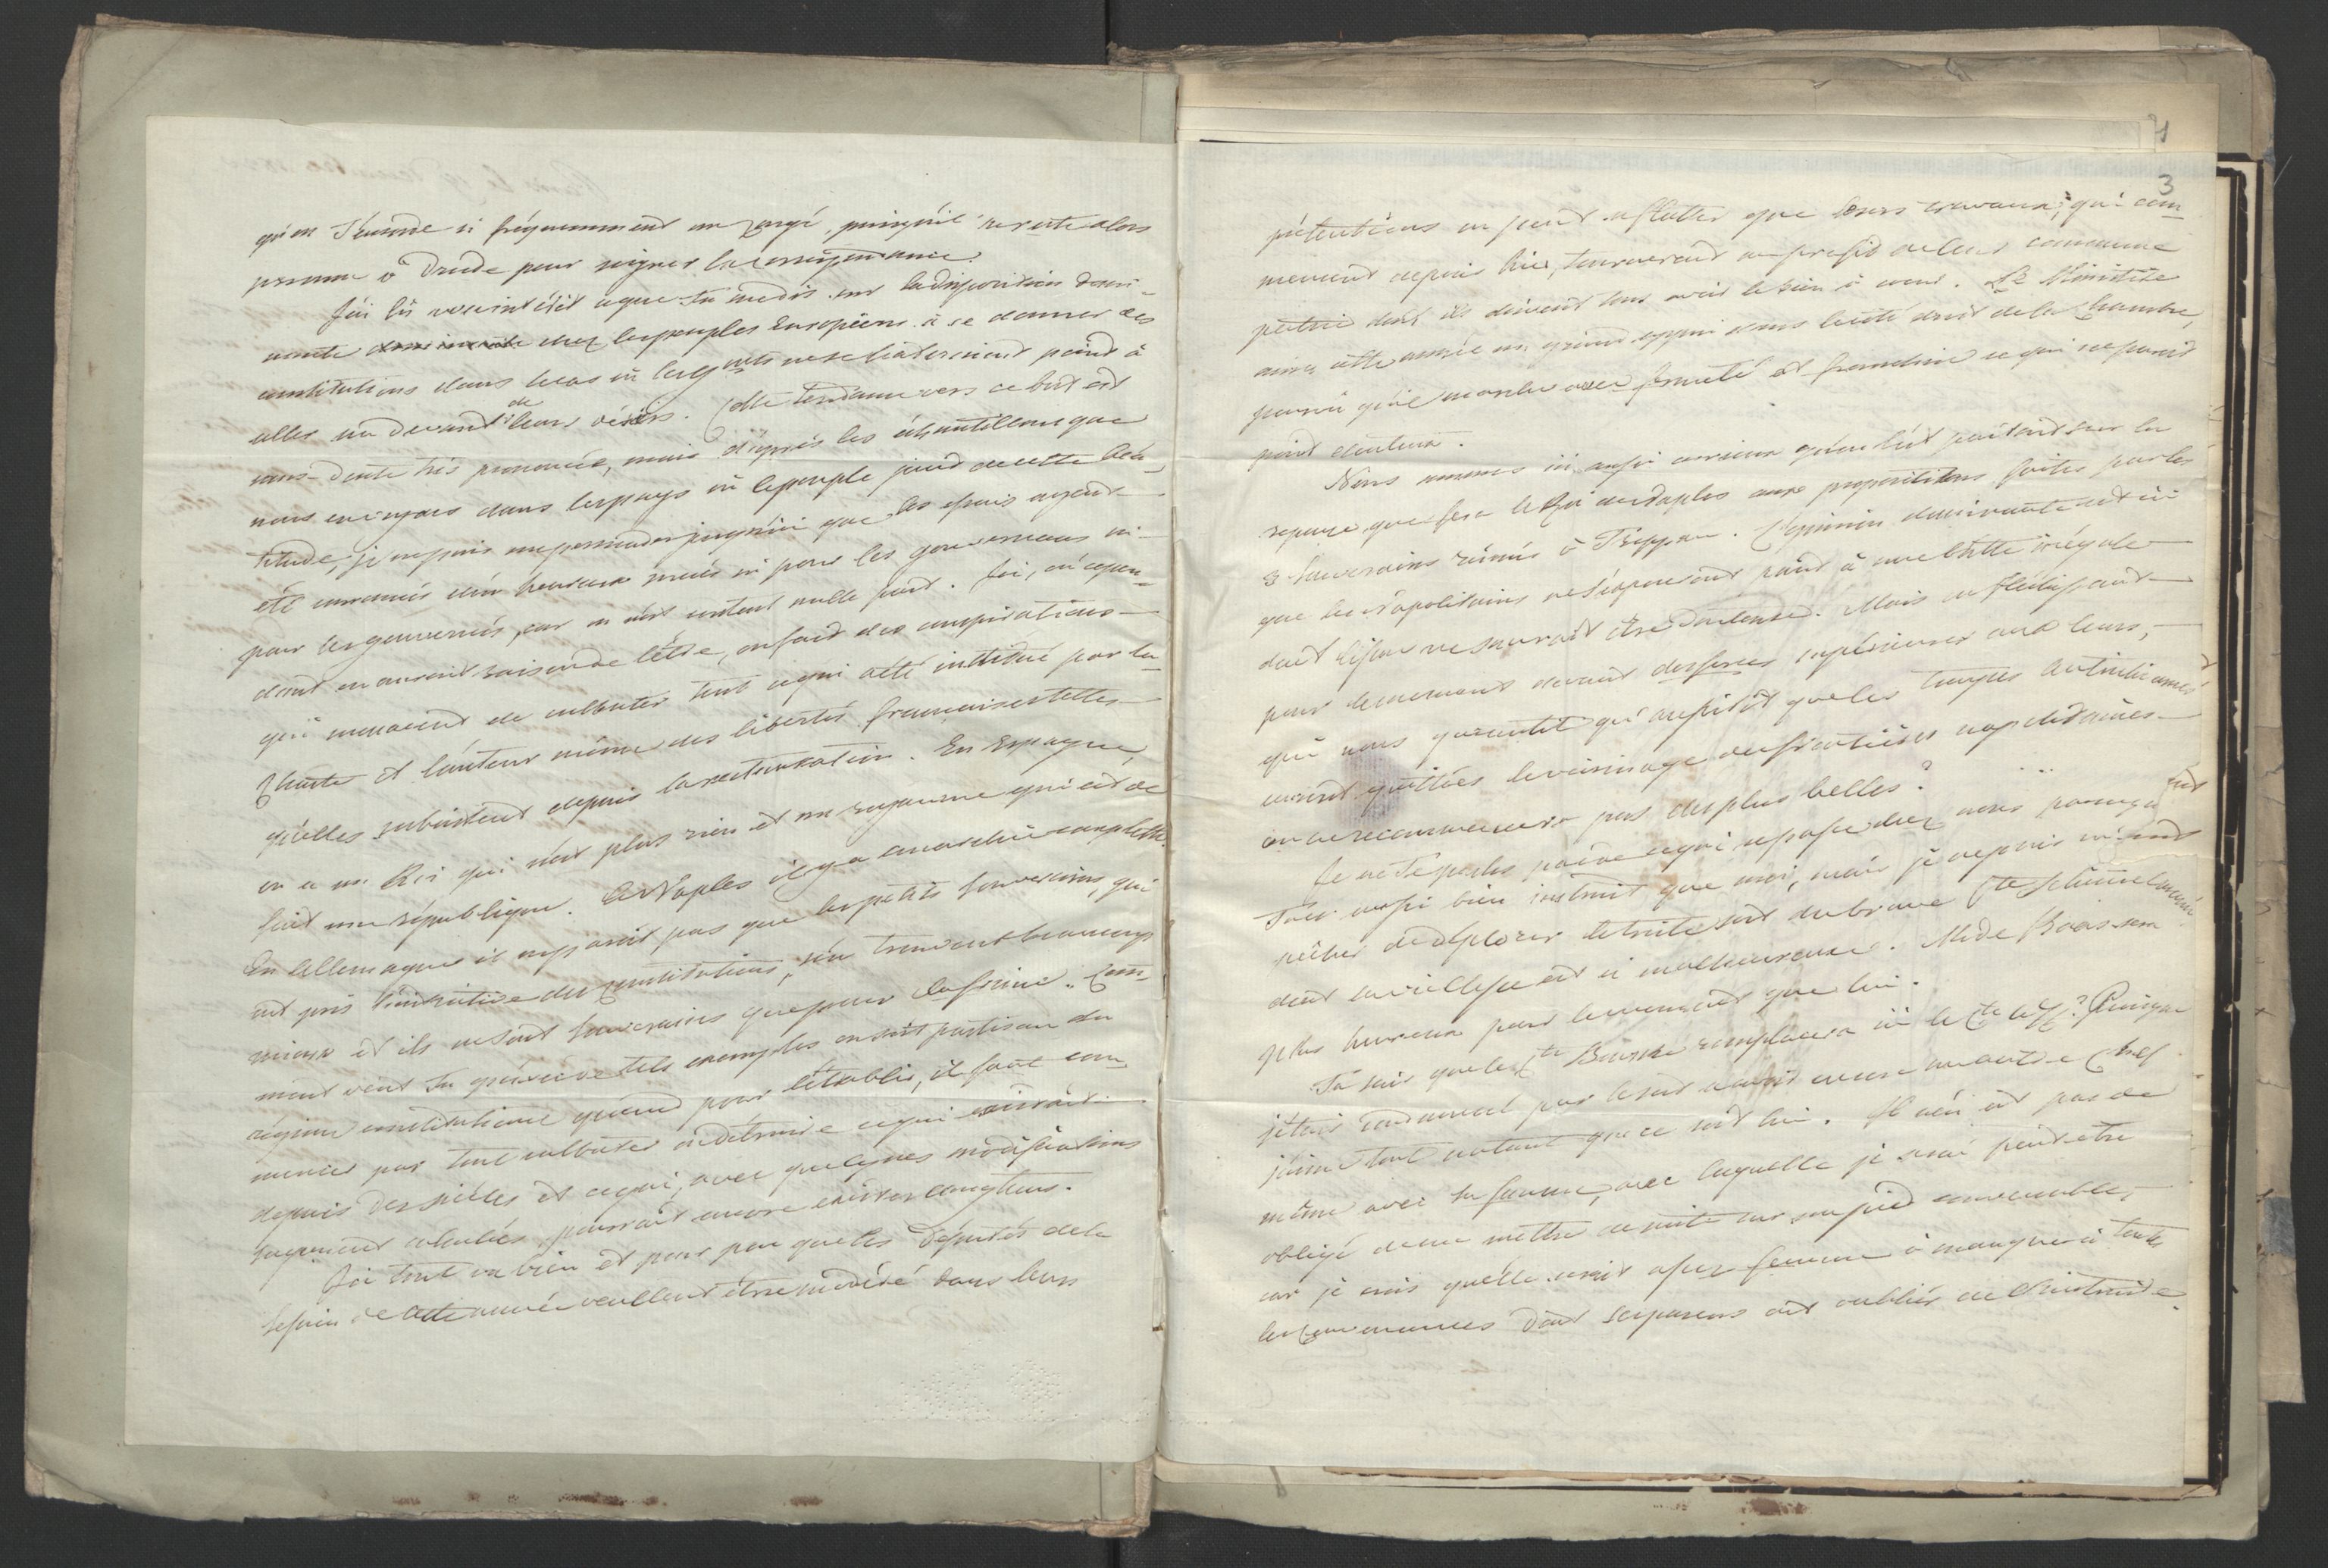 qu'on t'accorde si fréquemment un congé, puisqu'il ne reste alors
personne à Dresde pour soigner la correspondance.
J'ai lû avec intérêt ce que tu me dis sur la disposition domi-
nante chez les peuples Européens à se donner des
constitutions dans le cas où les gvnts ne se hâteraient point à
aller au devant de leurs désirs. Cette tendance vers ce but est
sans-doute très prononcée, mais d'après les échantillons que
nous en voyons dans les pays où le peuple jouit de cette béa-
titude, je ne puis me persuader jusqu'ici que les essais ayent
été couronnés d'un heureux succès ni pour les gouverneurs ni
pour les gouvernés, car on n'est content nulle part. Ici, où cepen-
dant on aurait raison de l'être, on fait des conspirations
qui menacent de culbuter tout ce qui a été institué par la
Charte et l'auteur même des libertés françaises telles
qu'elles subsistent depuis la restauration. En Espagne,
on a un Roi qui n'est plus rien et un royaume qui est de
fait une république. A Naples il y a anarchie complette.
En Allemagne il ne paroît pas que les petits souverains, qui
ont pris l'initiative des constitutions, s'en trouvent beaucoup
mieux et ils ne sont souverains que pour la frime. Com-
ment veut tu qu'avec de tels exemples on soit partisan du
régime constitutionel quand pour l'établir, il faut com-
mencer par tout culbuter et détruire ce qui existait
depuis des siècles et ce qui, avec quelques modifications
sagement calculées, pourrait encore exister longtems.
Ici tout va bien et pour peu que les Députés de la
session de cette année veuillent être modéré dans leurs
71
3
prétentions on peut se flatter que leurs travaux, qui com-
mencent depuis hier, tourneront au profit de leur commune
patrie dont ils doivent tous avoir le bien à coeur. Le Ministère
aura cette année un grand appui dans le côté droit de la Chambre,
pourvû qu'il marche avec fermeté et franchise ce qui ne paroit
point douteux.
Nous sommes ici aussi curieux qu'on l'est partout sur la
réponse que fera le Roi de Naples aux propositions faites par les
3 Souverains réunis à Troppau. L'opinion dominante est ici
que les Napolitains ne s'exposeront point à une lutte inégale
dont l'issue ne saurait être douteuse. Mais en fléchissant
pour le moment devant des forces supérieures aux leurs,
qui nous garantit qu'aussitôt que les troupes autrichiennes
auront quittées le voisinage des frontières napolitaines
on ne recommencera pas des plus belles?
Je ne te parles point de ce qui se passe chez nous puisque
tu es aussi bien instruit que moi, mais je ne puis m'em-
pêcher de déplorer le triste sort du brave Cte Schimmelmann
dont la vieillesse est si malheureuse. Mr de Kaas sera
plus heureux pour le moment que lui.
Tu sais que le Cte Brincke remplacera ici le Cte de W? Puisque
j'étais condamné par le sort à avoir encore un autre Chef
j'aime tout autant que ce soit lui. Il n'en est pas de
même avec sa femme, avec laquelle je serai peut-être
obligé de me mettre de suite sur un pied convenable,
car je crois qu'elle serait assez femme à manquer à toutes
les convenances dont ses parens ont oubliés de l'instruire.